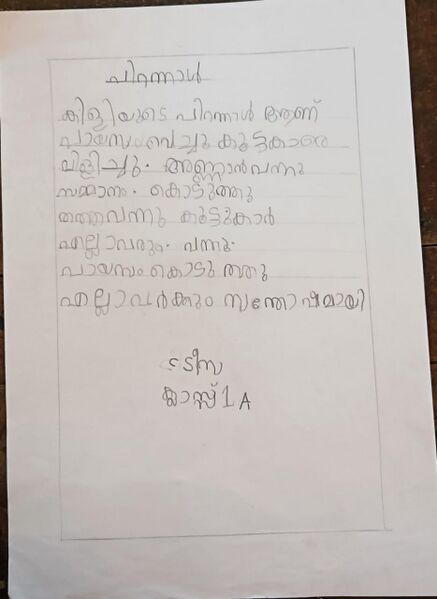 പിറന്നാൾ
കിളിയുടെ പിറന്നാൾ ആണ്
പായസം വെച്ചു കൂട്ടകാരെ
വിളിച്ചു. അണ്ണാൻ വന്നു
സമ്മാനം. കൊടുത്തു
തത്തവന്നു കൂട്ടുകാർ
എല്ലാവരും. വന്നു.
പായസം കൊടുത്തു
എല്ലാവർക്കും സന്തോഷമായി
ക്ലാസ്സ് 1 A